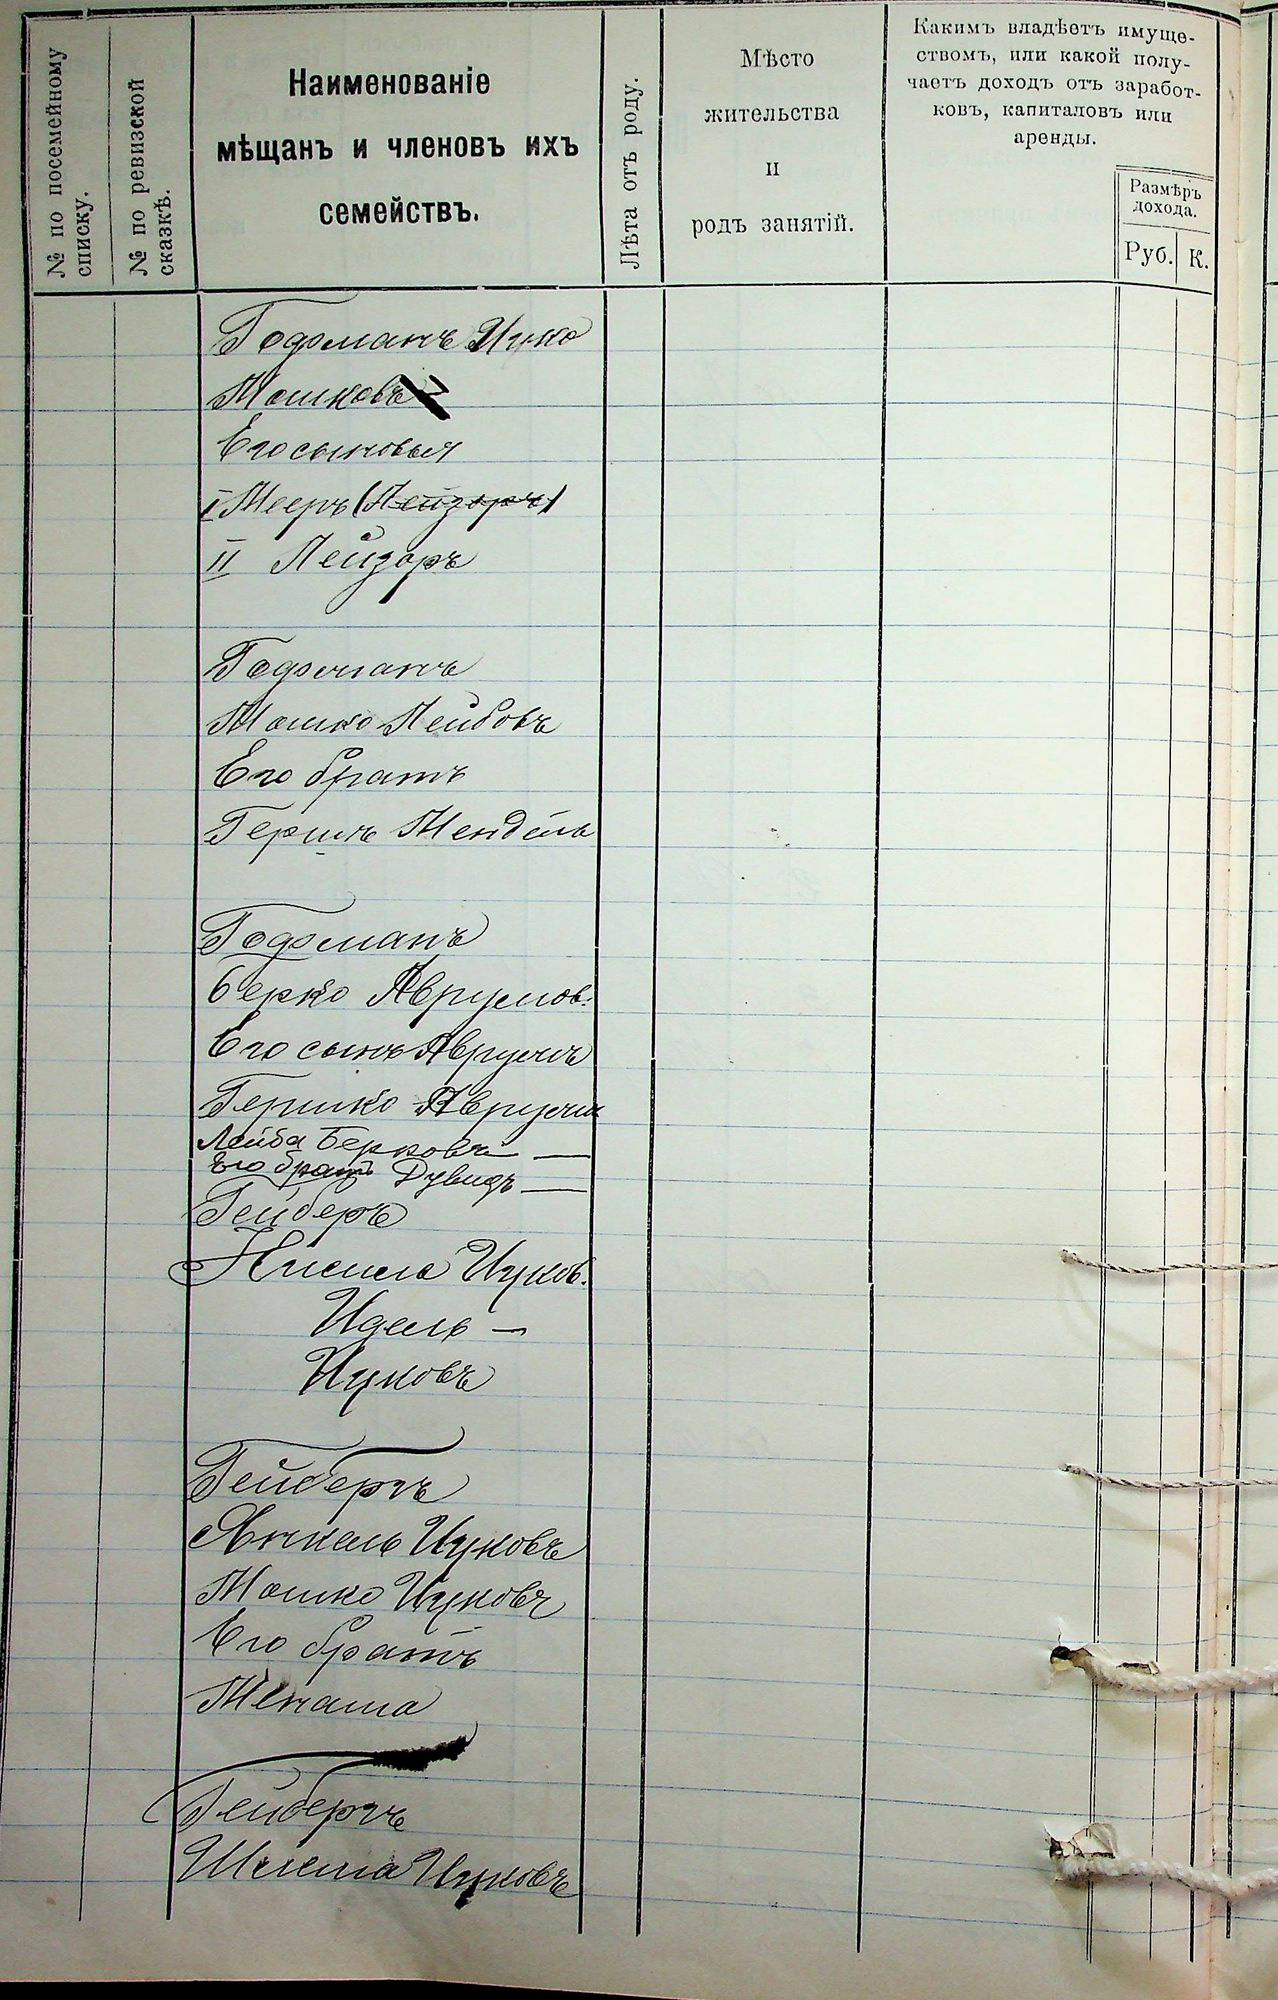 № по посемейному списку.
№ по ревизской сказкѣ.
Наименованіе
мѣщанъ и членовъ ихъ
семействъ.
Лѣта отъ роду.
Мѣсто
жительства
и
родъ занятій.
Какимъ владѣетъ имуще-
ствомъ, или какой полу-
чаетъ доходъ отъ заработ-
ковъ, капиталовъ или
аренды.
Размѣръ
дохода.
Руб. К.
Годоманъ Ицко
Мошковъ
Его сыновья
I Мееръ (Лейзоръ)
II Лейзоръ
Годоманъ
Мошко Лейбовъ
Его братъ
Гершъ Мендель
Годоманъ
Берко Аврумов.
Его сынъ Аврумъ
Гершко Аврумъ
Лейба Берковъ —
Его братъ Дувидъ —
Гейберъ
Ицков.
Идель —
Ицковъ
Гейберъ
Янкель Ицковъ
Мошко Ицковъ
Его братъ
Менаша
Гейберъ
Шлема Ицковъ